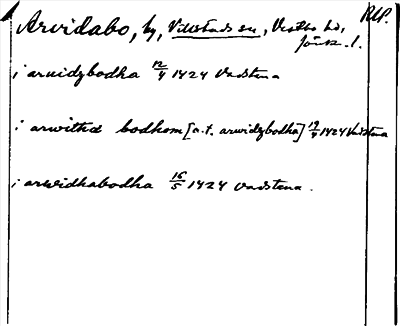 RUP.
Arvidabo, by, Villstads sn, Västbo hd,
Jönk. l.
i aruidzbodha 12/4 1424 Vadstena
i arwithæ bodhom [a.t. arwidzbodha] 19/4 1424 Vadstena
i arwidhabodha 16/5 1424 Vadstena.